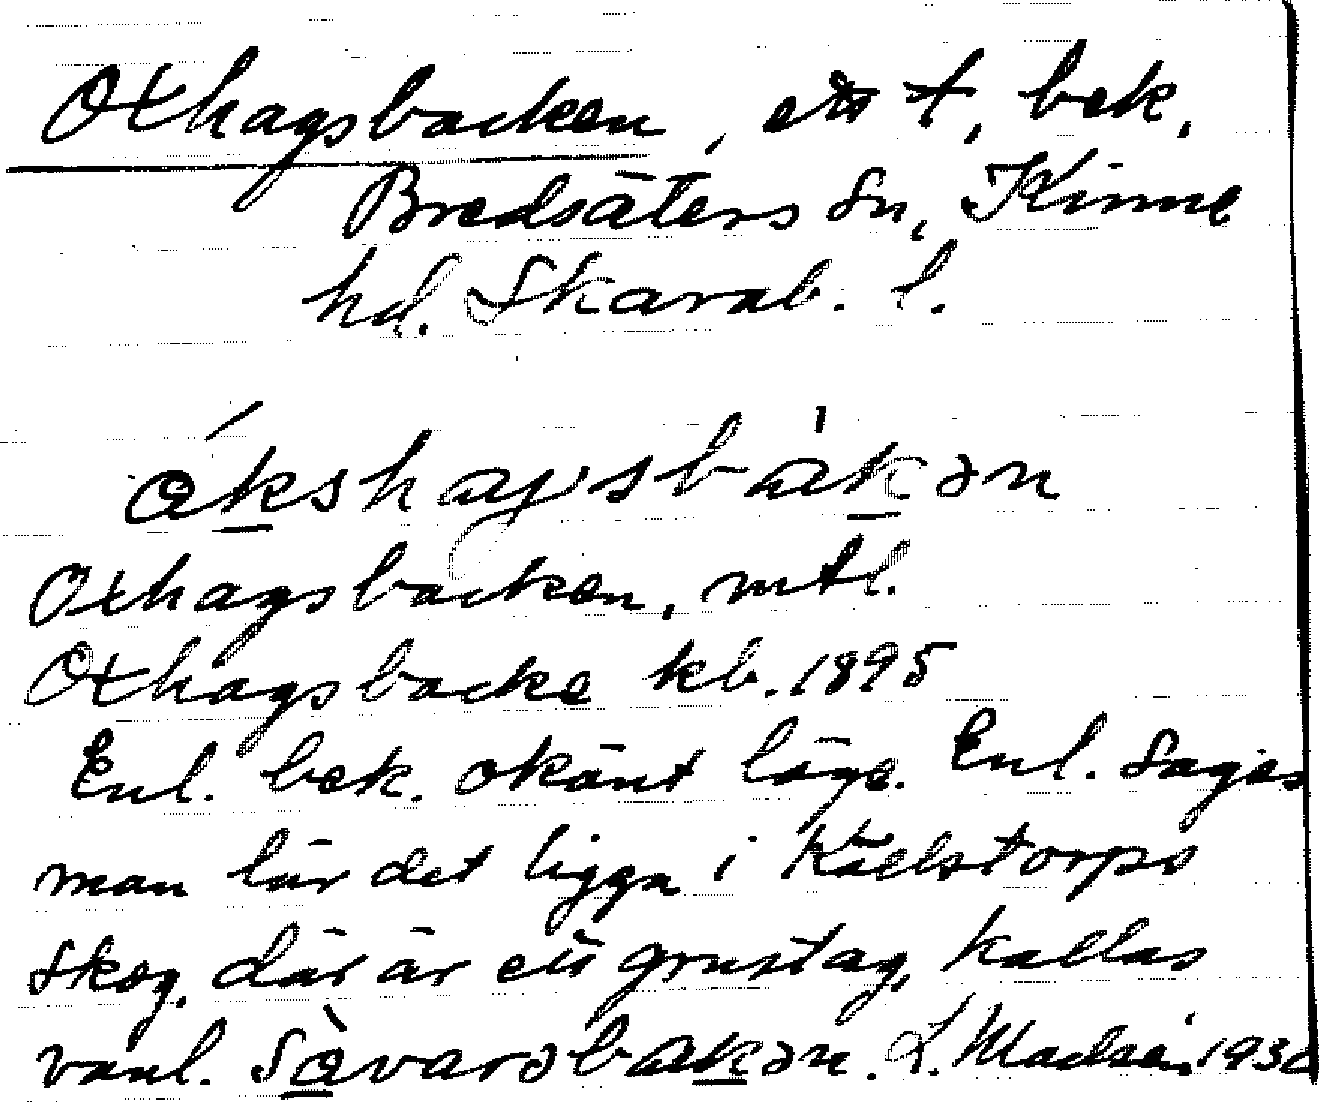 Oxhagsbacken, ett t, bek.
Bredsäters sn, Kinne
hd. Skarab. l.
ókshagsbàkən
Oxhagsbacken, mtl.
Oxhagsbacke kb. 1895
Enl. bek. okänt läge. Enl. sages
man lär det ligga i Källstorps
skog, där är ett grustag, kallas
vanl. Sàvarsbakən. L. 193